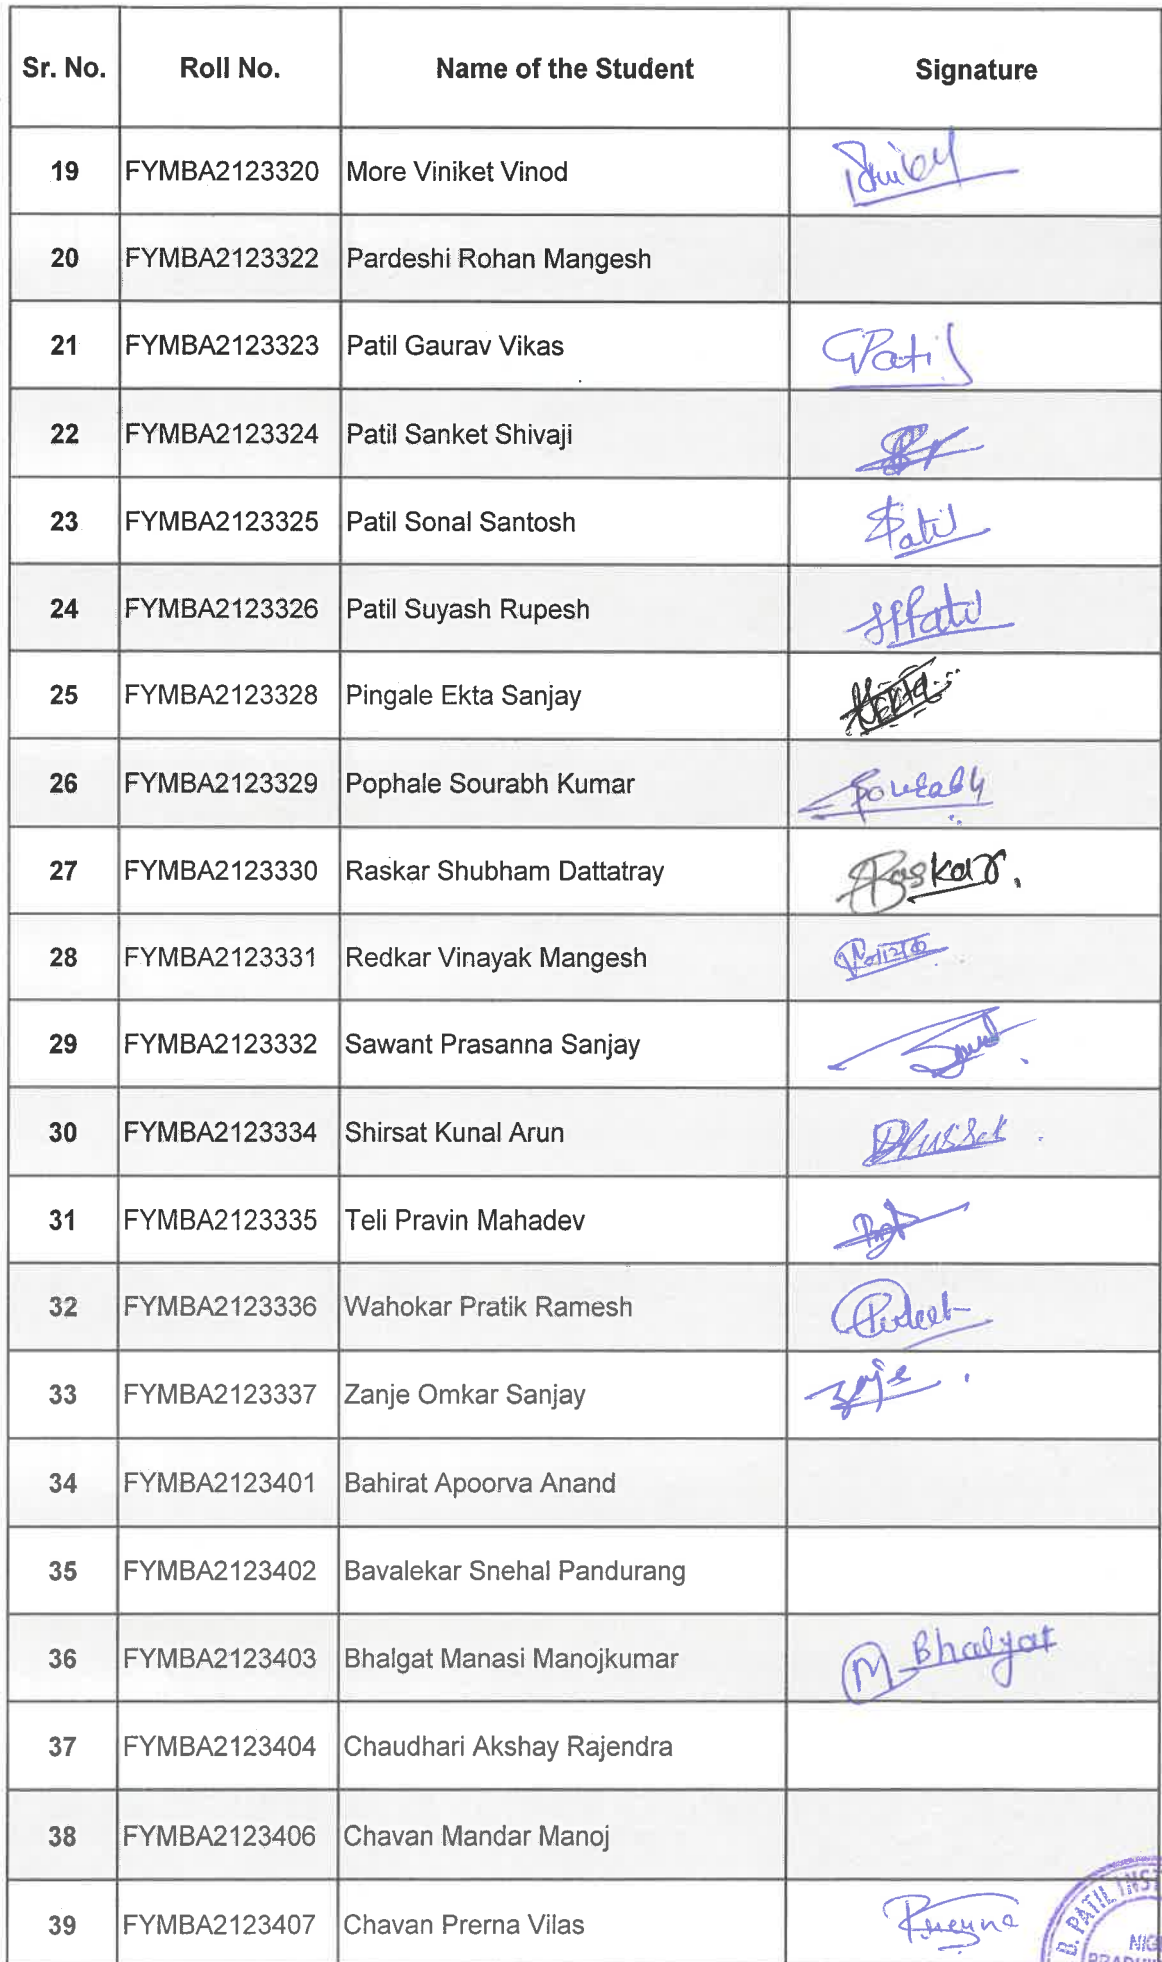 Sr. No. Roll No. Name of the Student Signature
19 FYMBA2123320 More Viniket Vinod
20 FYMBA2123322 Pardeshi Rohan Mangesh
21 FYMBA2123323 Patil Gaurav Vikas GPatil
22 FYMBA2123324 Patil Sanket Shivaji
23 FYMBA2123325 Patil Sonal Santosh SPatil
24 FYMBA2123326 Patil Suyash Rupesh
25 FYMBA2123328 Pingale Ekta Sanjay
26 FYMBA2123329 Pophale Sourabh Kumar Sourabh
27 FYMBA2123330 Raskar Shubham Dattatray SRaskar.
28 FYMBA2123331 Redkar Vinayak Mangesh विनायक
29 FYMBA2123332 Sawant Prasanna Sanjay
30 FYMBA2123334 Shirsat Kunal Arun
31 FYMBA2123335 Teli Pravin Mahadev
32 FYMBA2123336 Wahokar Pratik Ramesh
33 FYMBA2123337 Zanje Omkar Sanjay
34 FYMBA2123401 Bahirat Apoorva Anand
35 FYMBA2123402 Bavalekar Snehal Pandurang
36 FYMBA2123403 Bhalgat Manasi Manojkumar M Bhalgat
37 FYMBA2123404 Chaudhari Akshay Rajendra
38 FYMBA2123406 Chavan Mandar Manoj
39 FYMBA2123407 Chavan Prerna Vilas Prerna
D. PATIL INST
NIG